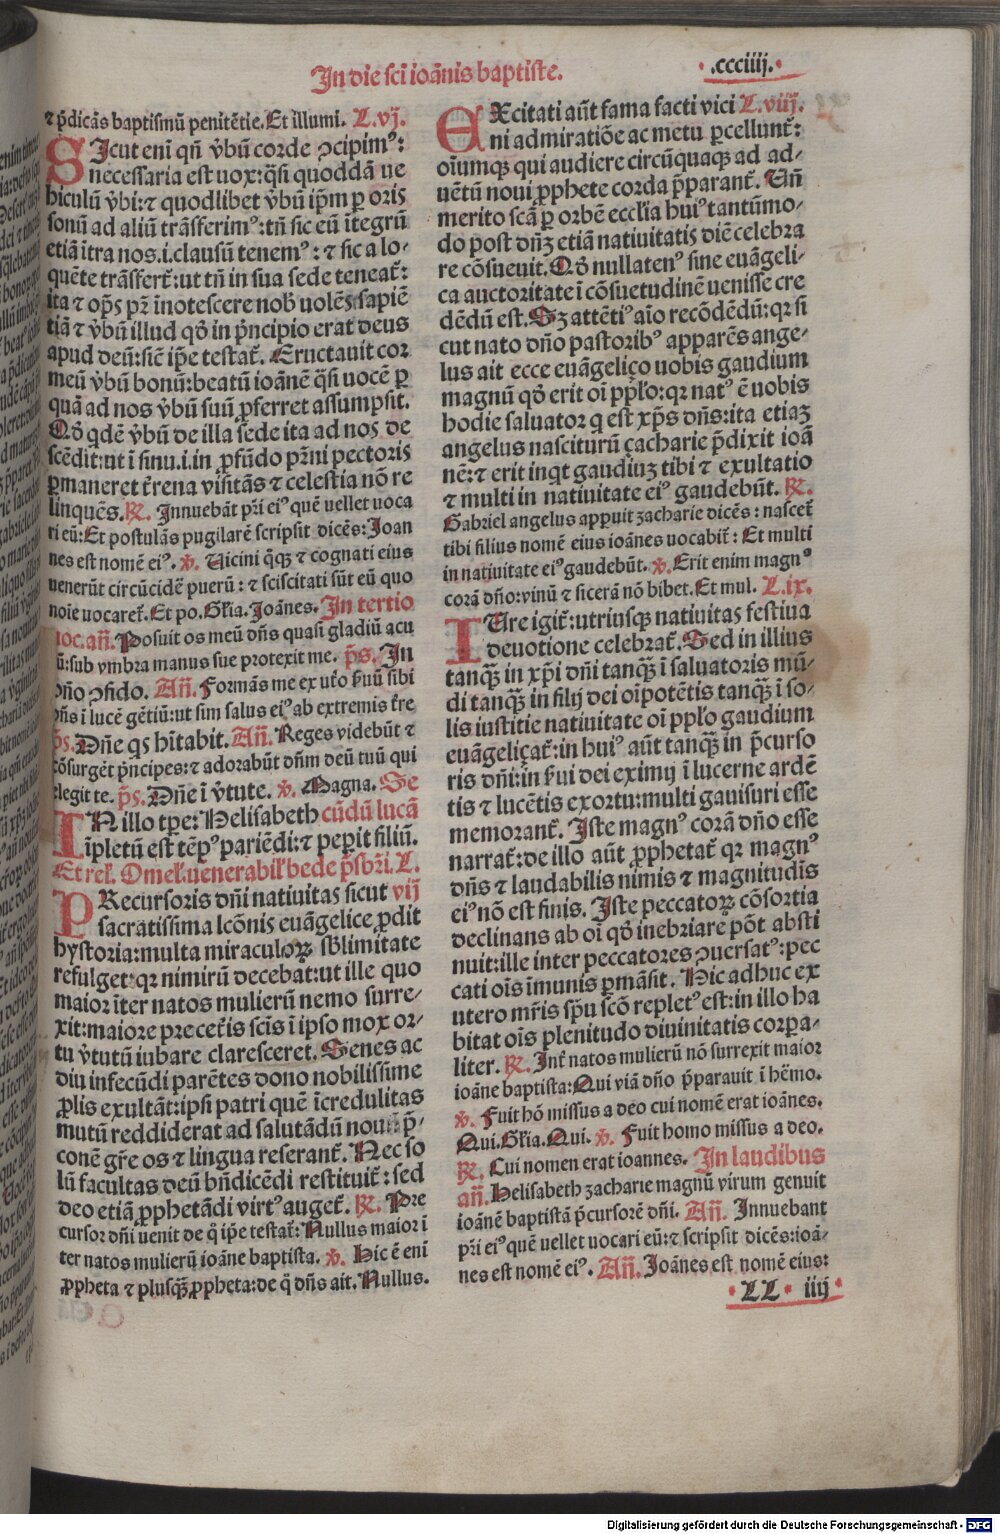 In die sci ioānis baptiste.
.ccciiij.
⁊ p̄dicās baptismū penitētie. Et illumi. L.vj.
SIcut eni qn̄ v̓bū corde ↄcipim⁹:
necessaria est uox: q̄si quoddā ue
hiculū v̓bi: ⁊ quodlibet v̓bū ip̄m ꝑ oris
sonū ad aliū trāsferim⁹: tn̄ sic eū ītegrū
etiā ītra nos .i. clausū tenem⁹: ⁊ sic a lo-
quēte trāsfert̄: ut tn̄ in sua sede teneat̄:
ita ⁊ op̄s pr̄ īnotescere nob̄ uolēs sapiē
tiā ⁊ v̓bū illud qd̓ in p̄ncipio erat deus
apud deū: siē ip̄e testat̄. Eructauit cor
meū v̓bū bonū: beatū ioānē q̄si uocē ꝑ
quā ad nos v̓bū suū ꝓferret assumpsit.
Qd̓ qdē v̓bū de illa sede ita ad nos de
scēdit: ut ī sinu .i. in ꝓfūdo pr̄ni pectoris
ꝑmaneret t̄rena visitās ⁊ celestia nō re
linquēs. ℟. Innuebāt pr̄i ei⁹ quē uellet uoca
ri eū: Et postulās pugilarē scripsit dicēs: Joan
nes est nomē ei⁹. ℣. Uicini q̄ꝗ ⁊ cognati eius
uenerūt circūcidē puerū: ⁊ sciscitati sūt eū quo
noīe uocaret̄. Et po. Gl̄ia. Joānes. In tertio
noc. an̄. Posuit os meū dn̄s quasi gladiū acu
ū: sub vmbra manus sue protexit me. p̄s. In
dn̄o ↄfido. An̄. Formās me ex ut̄o s̄uū sibi
dn̄s ī lucē gētiū: ut sim salus ei⁹ ab extremis t̄re
p̄s. Dn̄e qs hītabit. An̄. Reges videbūt ⁊
cōsurgēt p̄ncipes: ⁊ adorabūt dn̄m deū tuū qui
elegit te. p̄s. Dn̄e ī v̓tute. ℣. Magna. Se
IN illo tꝑe: Helisabeth cūdū lucā
īpletū est tēp⁹ pariēdi: ⁊ peꝑit filiū.
Et rel̓. Omel̓. uenerabil̓ bede p̄sbr̄i. L.
PRecursoris dn̄i natiuitas sicut vij
sacratissima lcōnis euāgelice ꝓdit
hystoria: multa miraculoꝝ sb̄limitate
refulget: qr nimirū decebat: ut ille quo
maior īter natos mulierū nemo surre-
xit: maiore pre cet̄is scīs ī ipso mox or-
tu v̓tutū iubare claresceret. Senes ac
diu infecūdi parētes dono nobilissime
ꝓlis exultāt: ipsi patri quē īcredulitas
mutū reddiderat ad salutādū noui p̄-
conē gr̄e os ⁊ lingua reserant̄. Nec so
lū facultas deū bn̄dicēdi restituit̄: sed
deo etiā ꝓphetādi virt⁹ auget̄. ℟. Pre
cursor dn̄i uenit de q̄ ip̄e testat̄: Nullus maior ī
ter natos mulierū ioāne baptista. ℣. Hic ē eni
ꝓpheta ⁊ plusq̄ꝫ ꝓpheta: de q̄ dn̄s ait. Nullus.
EXcitati aūt fama facti vici L.viij.
ni admiratiōe ac metu ꝑcellunt̄:
oīumqꝫ qui audiere circūquaqꝫ ad ad-
uētū noui ꝓphete corda p̄parant̄. Un̄
merito scā ꝑ orbē eccl̓ia hui⁹ tantūmo-
do post dn̄ꝫ etiā natiuitatis diē celebra
re cōsueuit. Qd̓ nullaten⁹ sine euāgeli-
ca auctoritate ī cōsuetudinē uenisse cre
dēdū est. Sꝫ attēti⁹ aīo recōdēdū: qr si
cut nato dn̄o pastorib⁹ apparēs ange-
lus ait ecce euāgeliço uobis gaudium
magnū qd̓ erit oī ppl̓o: qr nat⁹ ē uobis
hodie saluator q est xp̄s dn̄s: ita etiaꝫ
angelus nasciturū çacharie p̄dixit ioā
nē: ⁊ erit inqt gaudiuꝫ tibi ⁊ exultatio
⁊ multi in natiuitate ei⁹ gaudebūt. ℟.
Gabriel angelus appuit zacharie dicēs: nascet̄
tibi filius nomē eius ioānes uocabit̄: Et multi
in natiuitate ei⁹ gaudebūt. ℣. Erit enim magn⁹
corā dn̄o: vinū ⁊ sicerā nō bibet. Et mul. L.ix.
IUre igit̄: utriusqꝫ natiuitas festiua
deuotione celebrat̄. Sed in illius
tanqꝫ̄ in xp̄i dn̄i tanqꝫ̄ ī saluatoris mū-
di tanqꝫ̄ in filij dei oīpotētis tanqꝫ̄ ī so-
lis iustitie natiuitate oī ppl̓o gaudium
euāgeliçat̄: in hui⁹ aūt tanqꝫ̄ in p̄curso
ris dn̄i: in s̄ui dei eximij ī lucerne ardē
tis ⁊ lucētis exortu: multi gauisuri esse
memorant̄. Iste magn⁹ corā dn̄o esse
narrat̄: de illo aūt ꝓphetat̄ qr magn⁹
dn̄s ⁊ laudabilis nimis ⁊ magnitudīs
ei⁹ nō est finis. Iste peccatoꝝ cōsortia
declinans ab oī qd̓ inebriare pōt absti
nuit: ille inter peccatores ↄuersat⁹: pec
cati oīs īmunis ꝑmāsit. Hic adhuc ex
utero mr̄is sp̄u scō replet⁹ est: in illo ha
bitat oīs plenitudo diuinitatis corꝑa-
liter. ℟. Int̄ natos mulierū nō surrexit maior
ioāne baptista: Qui viā dn̄o p̄parauit ī hēmo.
℣. Fuit hō missus a deo cui nomē erat ioānes.
Qui. Gl̄ia. Qui. ℣. Fuit homo missus a deo.
℟. Cui nomen erat ioannes. In laudibus
an̄. Helisabeth zacharie magnū virum genuit
ioānē baptistā p̄cursorē dn̄i. An̄. Innuebant
pr̄i ei⁹ quē uellet uocari eū: ⁊ scripsit dicēs: ioā-
nes est nomē ei⁹. An̄. Joānes est nomē eius:
LL iiij
Digitalisierung gefördert durch die Deutsche Forschungsgemeinschaft - DFG